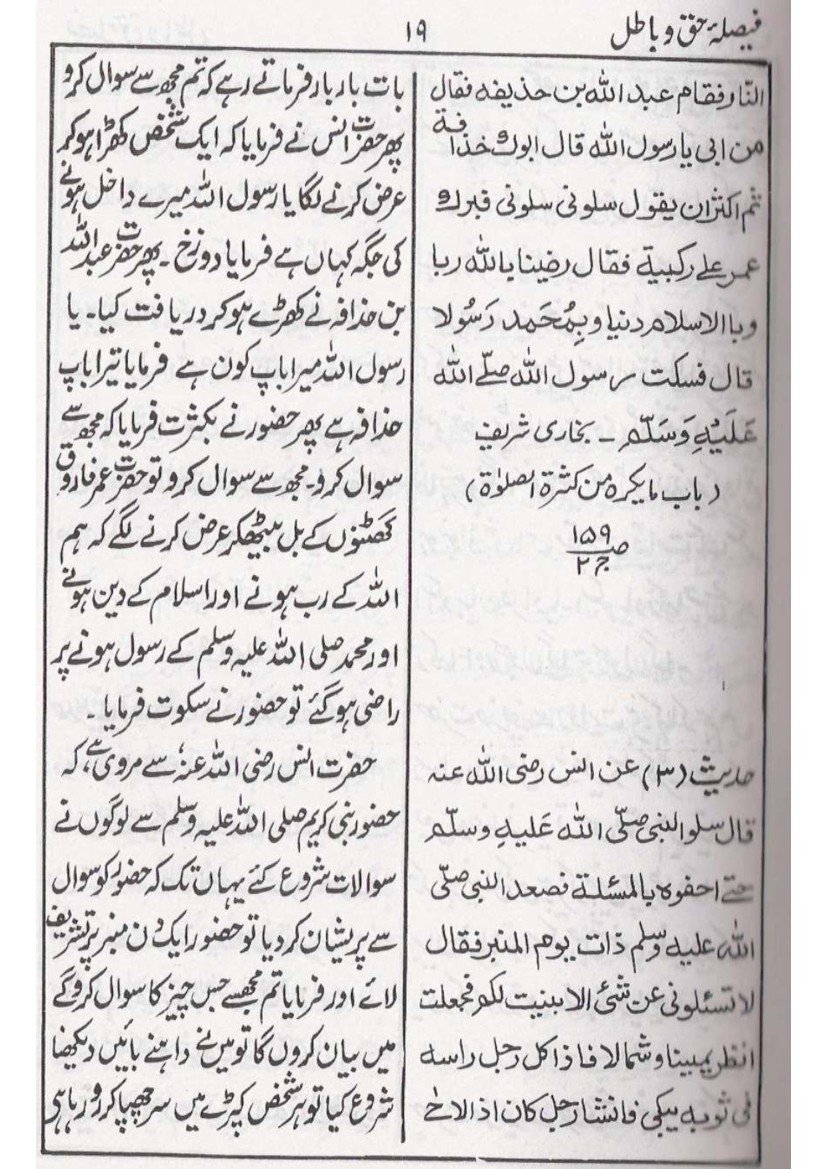 فیصلۂ حق و باطل
۱۹
النار فقام عبد الله بن حذيفه فقال
من ابى يا رسول الله قال ابوك خذافة
ثم اكثران يقول سلونى سلونى فبرك
عمر على ركبية فقال رضينا بالله ربا
وبا الاسلام دنيا وبمُحَمد رَسُولا
قال فسكت رسول الله صلے الله
عَلَيْهِ وَسَلَّمِ ۔ بخاری شریف
(باب ما يكره من كثرة الصلوٰة)
صـ ۱۵۹
ج ۲
حديث (۳) عن انس رضى الله عنه
قال سلو النبى صلّى الله عَليهِ وسلّم
حتے احفوه بالمسئلة فصعد النبى صلّى
الله عليه وسلم ذات يوم المنبر فقال
لا تسئلونى عن شئ الا بينيت لكم فجعلت
انظر يمينا وشمالا فاذا كل رجل راسه
فى ثوبه يبكى فانشا رجل كان اذ الاحٰ
بات بار بار فرماتے رہے کہ تم مجھ سے سوال کرو
پھر حضرت انس نے فرمایا کہ ایک شخص کھڑا ہو کر
عرض کرنے لگا یا رسول اللہ میرے داخل ہونے
کی جگہ کہاں ہے فرمایا دوزخ ۔ پھر حضرت عبد اللہ
بن حذافہ نے کھڑے ہو کر دریافت کیا ۔ یا
رسول اللہ میرا باپ کون ہے فرمایا تیرا باپ
حذافہ ہے پھر حضور نے بکثرت فرمایا کہ مجھ سے
سوال کرو ۔ مجھ سے سوال کرو تو حضرت عمر فاروق
گھٹنوں کے بل بیٹھ کر عرض کرنے لگے کہ ہم
اللہ کے رب ہونے اور اسلام کے دین ہونے
اور محمد صلی اللہ علیہ وسلم کے رسول ہونے پر
راضی ہو گئے تو حضور نے سکوت فرمایا ۔
حضرت انس رضی اللہ عنہٗ سے مروی ہے، کہ
حضور نبی کریم صلی اللہ علیہ وسلم سے لوگوں نے
سوالات شروع کئے یہاں تک کہ حضور کو سوال
سے پریشان کر دیا تو حضور ایک دن منبر پر تشریف
لائے اور فرمایا تم مجھے جس چیز کا سوال کرو گے
میں بیان کروں گا تو میں نے داہنے بائیں دیکھنا
شروع کیا تو ہر شخص کپڑے میں سر چھپا کر رو رہا ہی